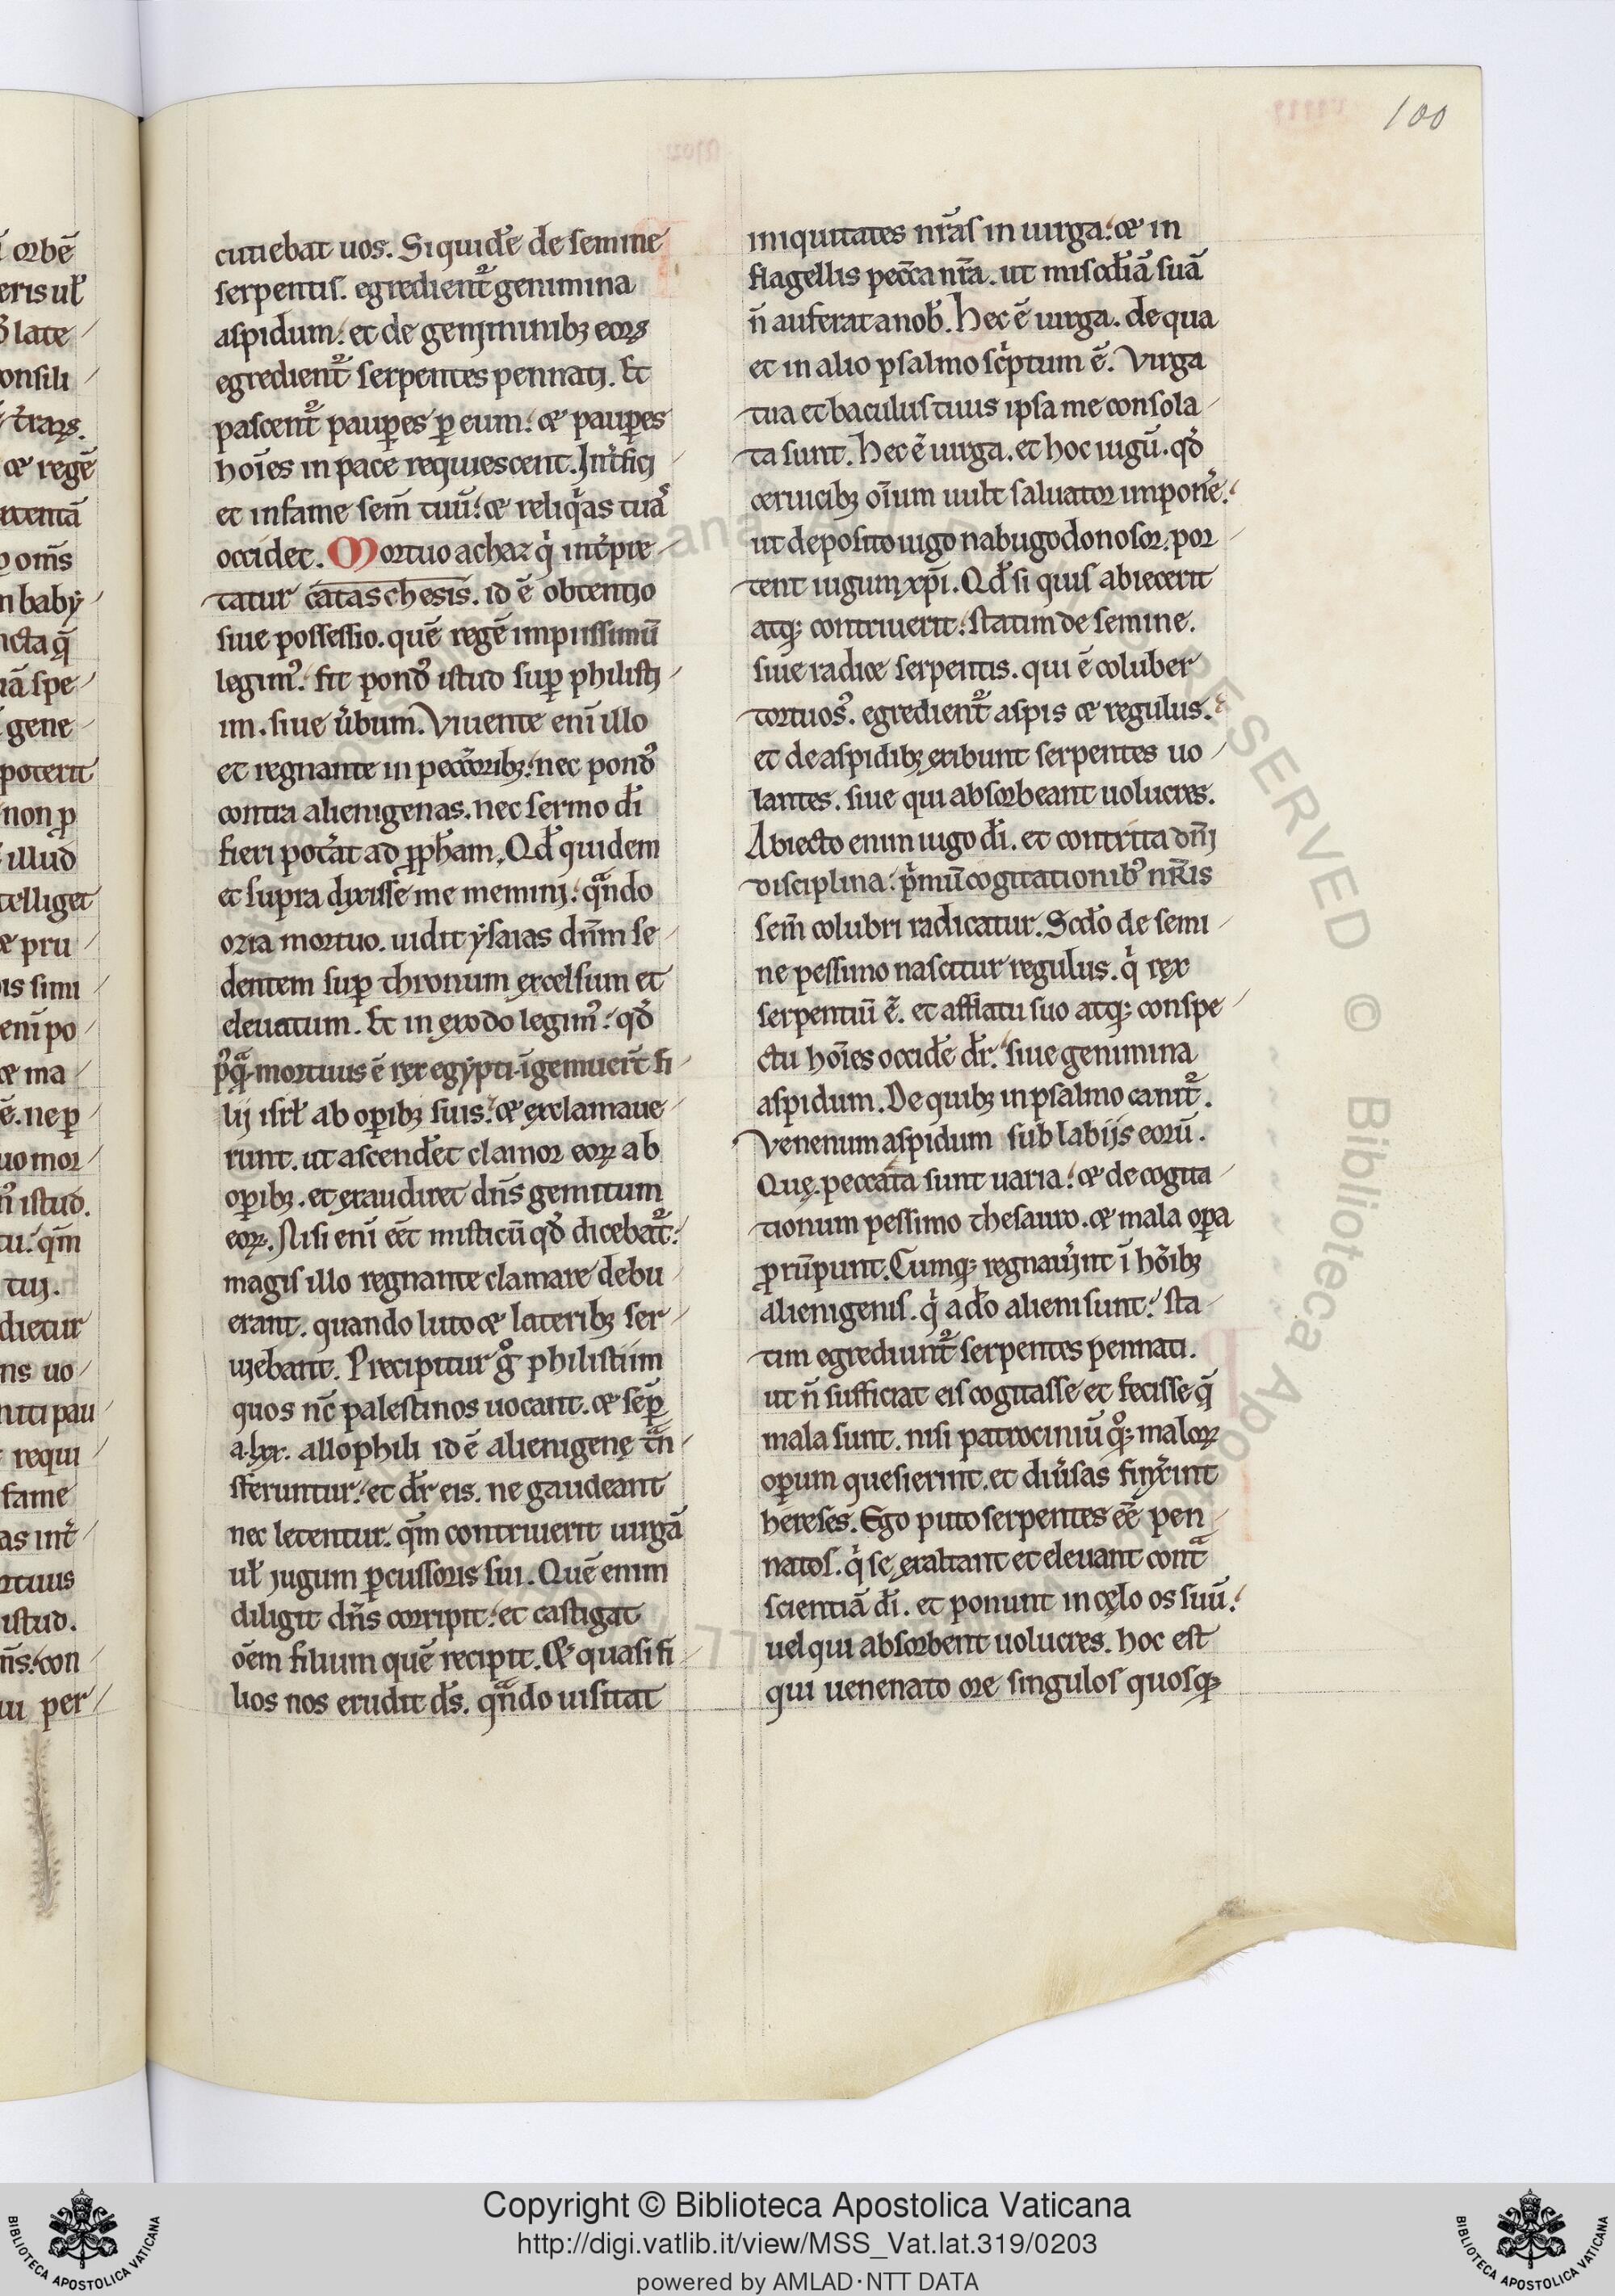 100
cutiebat uos. Siquidē de semine
serpentis. egredient᷑ genimina
aspidum: et de geniminibꝫ eoꝝ
egredient᷑ serpentes pennati. Et
pascent᷑ pauꝑes ꝑ eum: & pauꝑes
hoı̄es in pace requiescent. Int̾fici
et in fame sem̄ tuū: & reliqͥas tuaˢ
occidet. Mortuo achaz qͥ int̾pre
tatur cataschesis. id ē obtentio
siue possessio. quē regē impiissimū
legimꝰ: fit pondꝰ istud suꝑ philisti
im. siue u̾bum. Viuente enī illo
et regnante in peccatoribꝫ: nec pondꝰ
contra alienigenas. nec sermo dı̄
fieri pot̾at ad ꝓpham. Qđ quidem
et supra dixisse me memini: qᷓndo
ozia mortuo. uidit ysaias dn̄m se
dentem suꝑ thronum excelsum et
eleuatum. Et in exodo legimꝰ: qđ
pꝰqᷓ mortuus ē rex egypti ingemuer̄t fi
lij isrł ab oꝑibꝫ suis: & exclamaue
runt. ut ascendēt clamor eoꝝ ab
oꝑibꝫ. et exaudiret dn̄s gemitum
eoꝝ. Nisi enī eēt misticū qđ dicebat᷑:
magis illo regnante clamare debu
erant. quando luto & lateribꝫ ser
uiebant. Precipitur gͦ philistiim
quos nc̄ palestinos uocant. & seꝑ
a .lxx. allophili id ē alienigenę tᷓn
sferuntur: et dr̄ eis. ne gaudeant
nec letentur. qm̄ contriuerit uirgā
uł iugum ꝑcussoris sui. Quē enim
diligit dn̄s corripit: et castigat
ōem filium quē recipit. & quasi fi
lios nos erudit ds̄. qᷓndo uisitat
iniquitates nr̄as in uirga: & in
flagellis pecc̄a nr̄a. ut misc̄diā suā
n̄ auferat a nob̄. Hec ē uirga. de qua
et in alio psalmo scͥptum ē. Virga
tua et baculus tuus ipsa me consola
ta sunt. Hec ē uirga. et hoc iugū. qđ
ceruicibꝫ oı̄um uult saluator imponē:
ut deposito iugo nabugodonosor. por
tent iugum xp̄i. Qđ si quis abiecerit
atqꝫ contriuerit: statim de semine.
siue radice serpentis. qui ē coluber
tortuosꝰ. egredient᷑ aspis & regulus.
et de aspidibꝫ exibunt serpentes uo
lantes. siue qui absorbeant uolucres.
Abiecto enim iugo dı̄. et contrita dn̄i
disciplina: pͥmū cogitationibꝰ nr̄is
sem̄ colubri radicatur. Scdo de semi
ne pessimo nascitur regulus. qͥ rex
serpentiū ē. et afflatu suo atqꝫ conspe
ctu hoı̄es occidē dr̄: siue genimina
aspidum. De quibꝫ in psalmo canit᷑.
Venenum aspidum sub labijs eorū.
Quę peccata sunt uaria: & de cogita
tionum pessimo thesauro. & mala oꝑa
ꝓrūpunt. Cumqꝫ regnauerint ī hoı̄ibꝫ
alienigenis. qͥ a do alieni sunt: sta
tim egrediunt᷑ serpentes pennati.
ut n̄ sufficiat eis cogitasse et fecisse q̄
mala sunt. nisi patrociniū qͦꝫ maloꝝ
oꝑum quesierint. et diu̾sas finx̾int
hereses. Ego puto serpentes eē pen
natos. qͥ se exaltant et eleuant contᷓ
scientiā dı̄. et ponunt in cęlo os suū:
uel qui absorbent uolucres. hoc est
qui uenenato ore singulos quosqꝫ
Copyright © Biblioteca Apostolica Vaticana
http://digi.vatlib.it/view/MSS_Vat.lat.319/0203
powered by AMLAD·NTT DATA